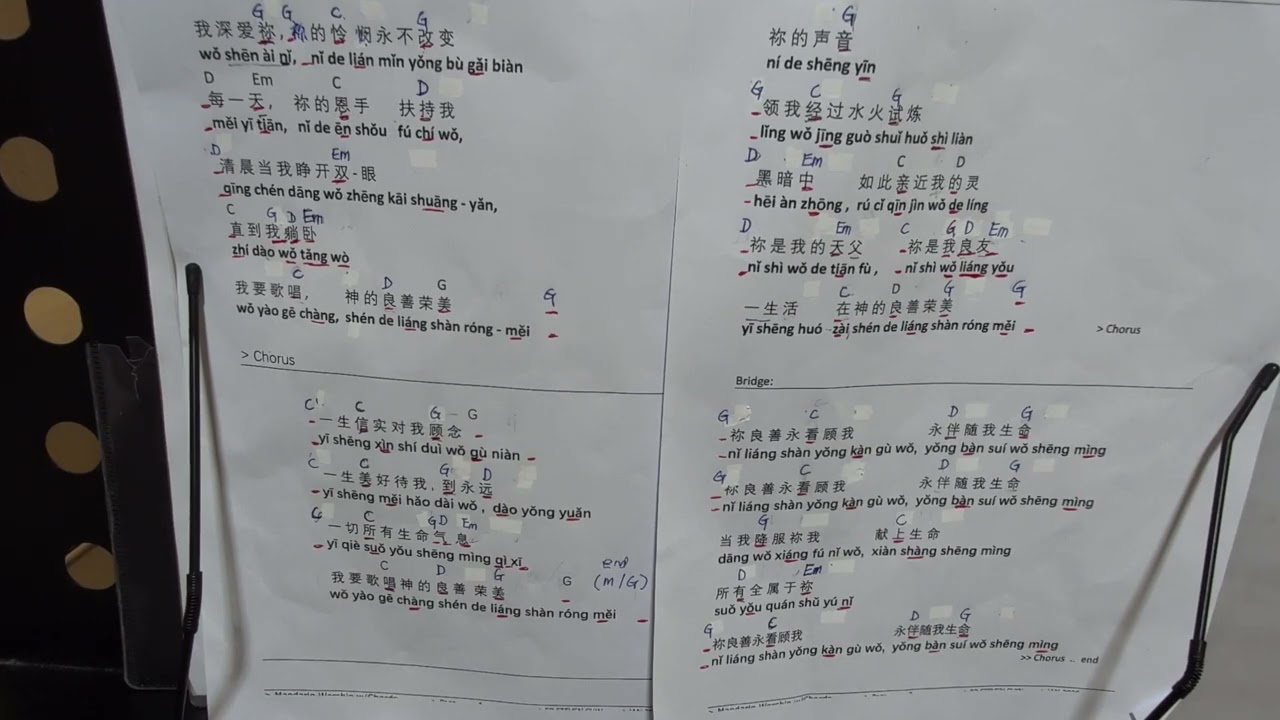 G G C G
我深爱祢, 祢的怜悯永不改变
wǒ shēn ài nǐ, nǐ de lián mǐn yǒng bù gǎi biàn
D Em C D
每一天, 祢的恩手 扶持我
měi yī tiān, nǐ de ēn shǒu fú chí wǒ,
D Em
清晨当我睁开双-眼
qīng chén dāng wǒ zhēng kāi shuāng - yǎn,
C G D Em
直到我躺卧
zhí dào wǒ tǎng wò
C D G G
我要歌唱, 神的良善荣美
wǒ yào gē chàng, shén de liáng shàn róng - měi
> Chorus
C C G G
一生信实对我顾念
yī shēng xìn shí duì wǒ gù niàn
C C G D
一生美好待我, 到永远
yī shēng měi hǎo dài wǒ, dào yǒng yuǎn
G C G D Em
一切所有生命气息
yī qiè suǒ yǒu shēng mìng qì xī
C D G G end (M/G)
我要歌唱神的良善荣美
wǒ yào gē chàng shén de liáng shàn róng měi
G
祢的声音
ní de shēng yīn
G C G
领我经过水火试炼
lǐng wǒ jīng guò shuǐ huǒ shì liàn
D Em C D
黑暗中 如此亲近我的灵
hēi àn zhōng, rú cǐ qīn jìn wǒ de líng
D Em C G D Em
祢是我的天父 祢是我良友
nǐ shì wǒ de tiān fù, nǐ shì wǒ liáng yǒu
C D G G
一生活 在神的良善荣美
yī shēng huó zài shén de liáng shàn róng měi
> Chorus
Bridge:
G C D G
祢良善永看顾我 永伴随我生命
nǐ liáng shàn yǒng kàn gù wǒ, yǒng bàn suí wǒ shēng mìng
G C D G
祢良善永看顾我 永伴随我生命
nǐ liáng shàn yǒng kàn gù wǒ, yǒng bàn suí wǒ shēng mìng
G C
当我降服祢我 献上生命
dāng wǒ xiáng fú nǐ wǒ, xiàn shàng shēng mìng
D Em
所有全属于祢
suǒ yǒu quán shǔ yú nǐ
G C D G
祢良善永看顾我 永伴随我生命
nǐ liáng shàn yǒng kàn gù wǒ, yǒng bàn suí wǒ shēng mìng
>> Chorus .. end